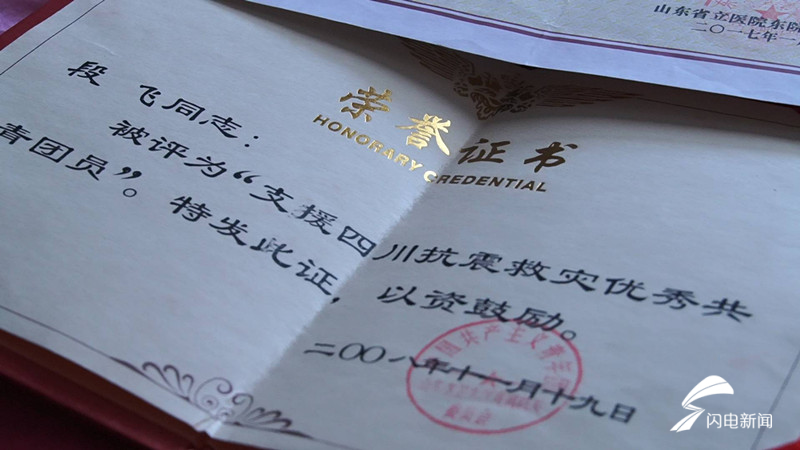 山东省立医院东院
二〇一七年一
荣誉证书
HONORARY CREDENTIAL
段 飞同志：
被评为“支援四川抗震救灾优秀共
青团员”。特发此证，以资鼓励。
二〇〇八年十一月十九日
闪电新闻